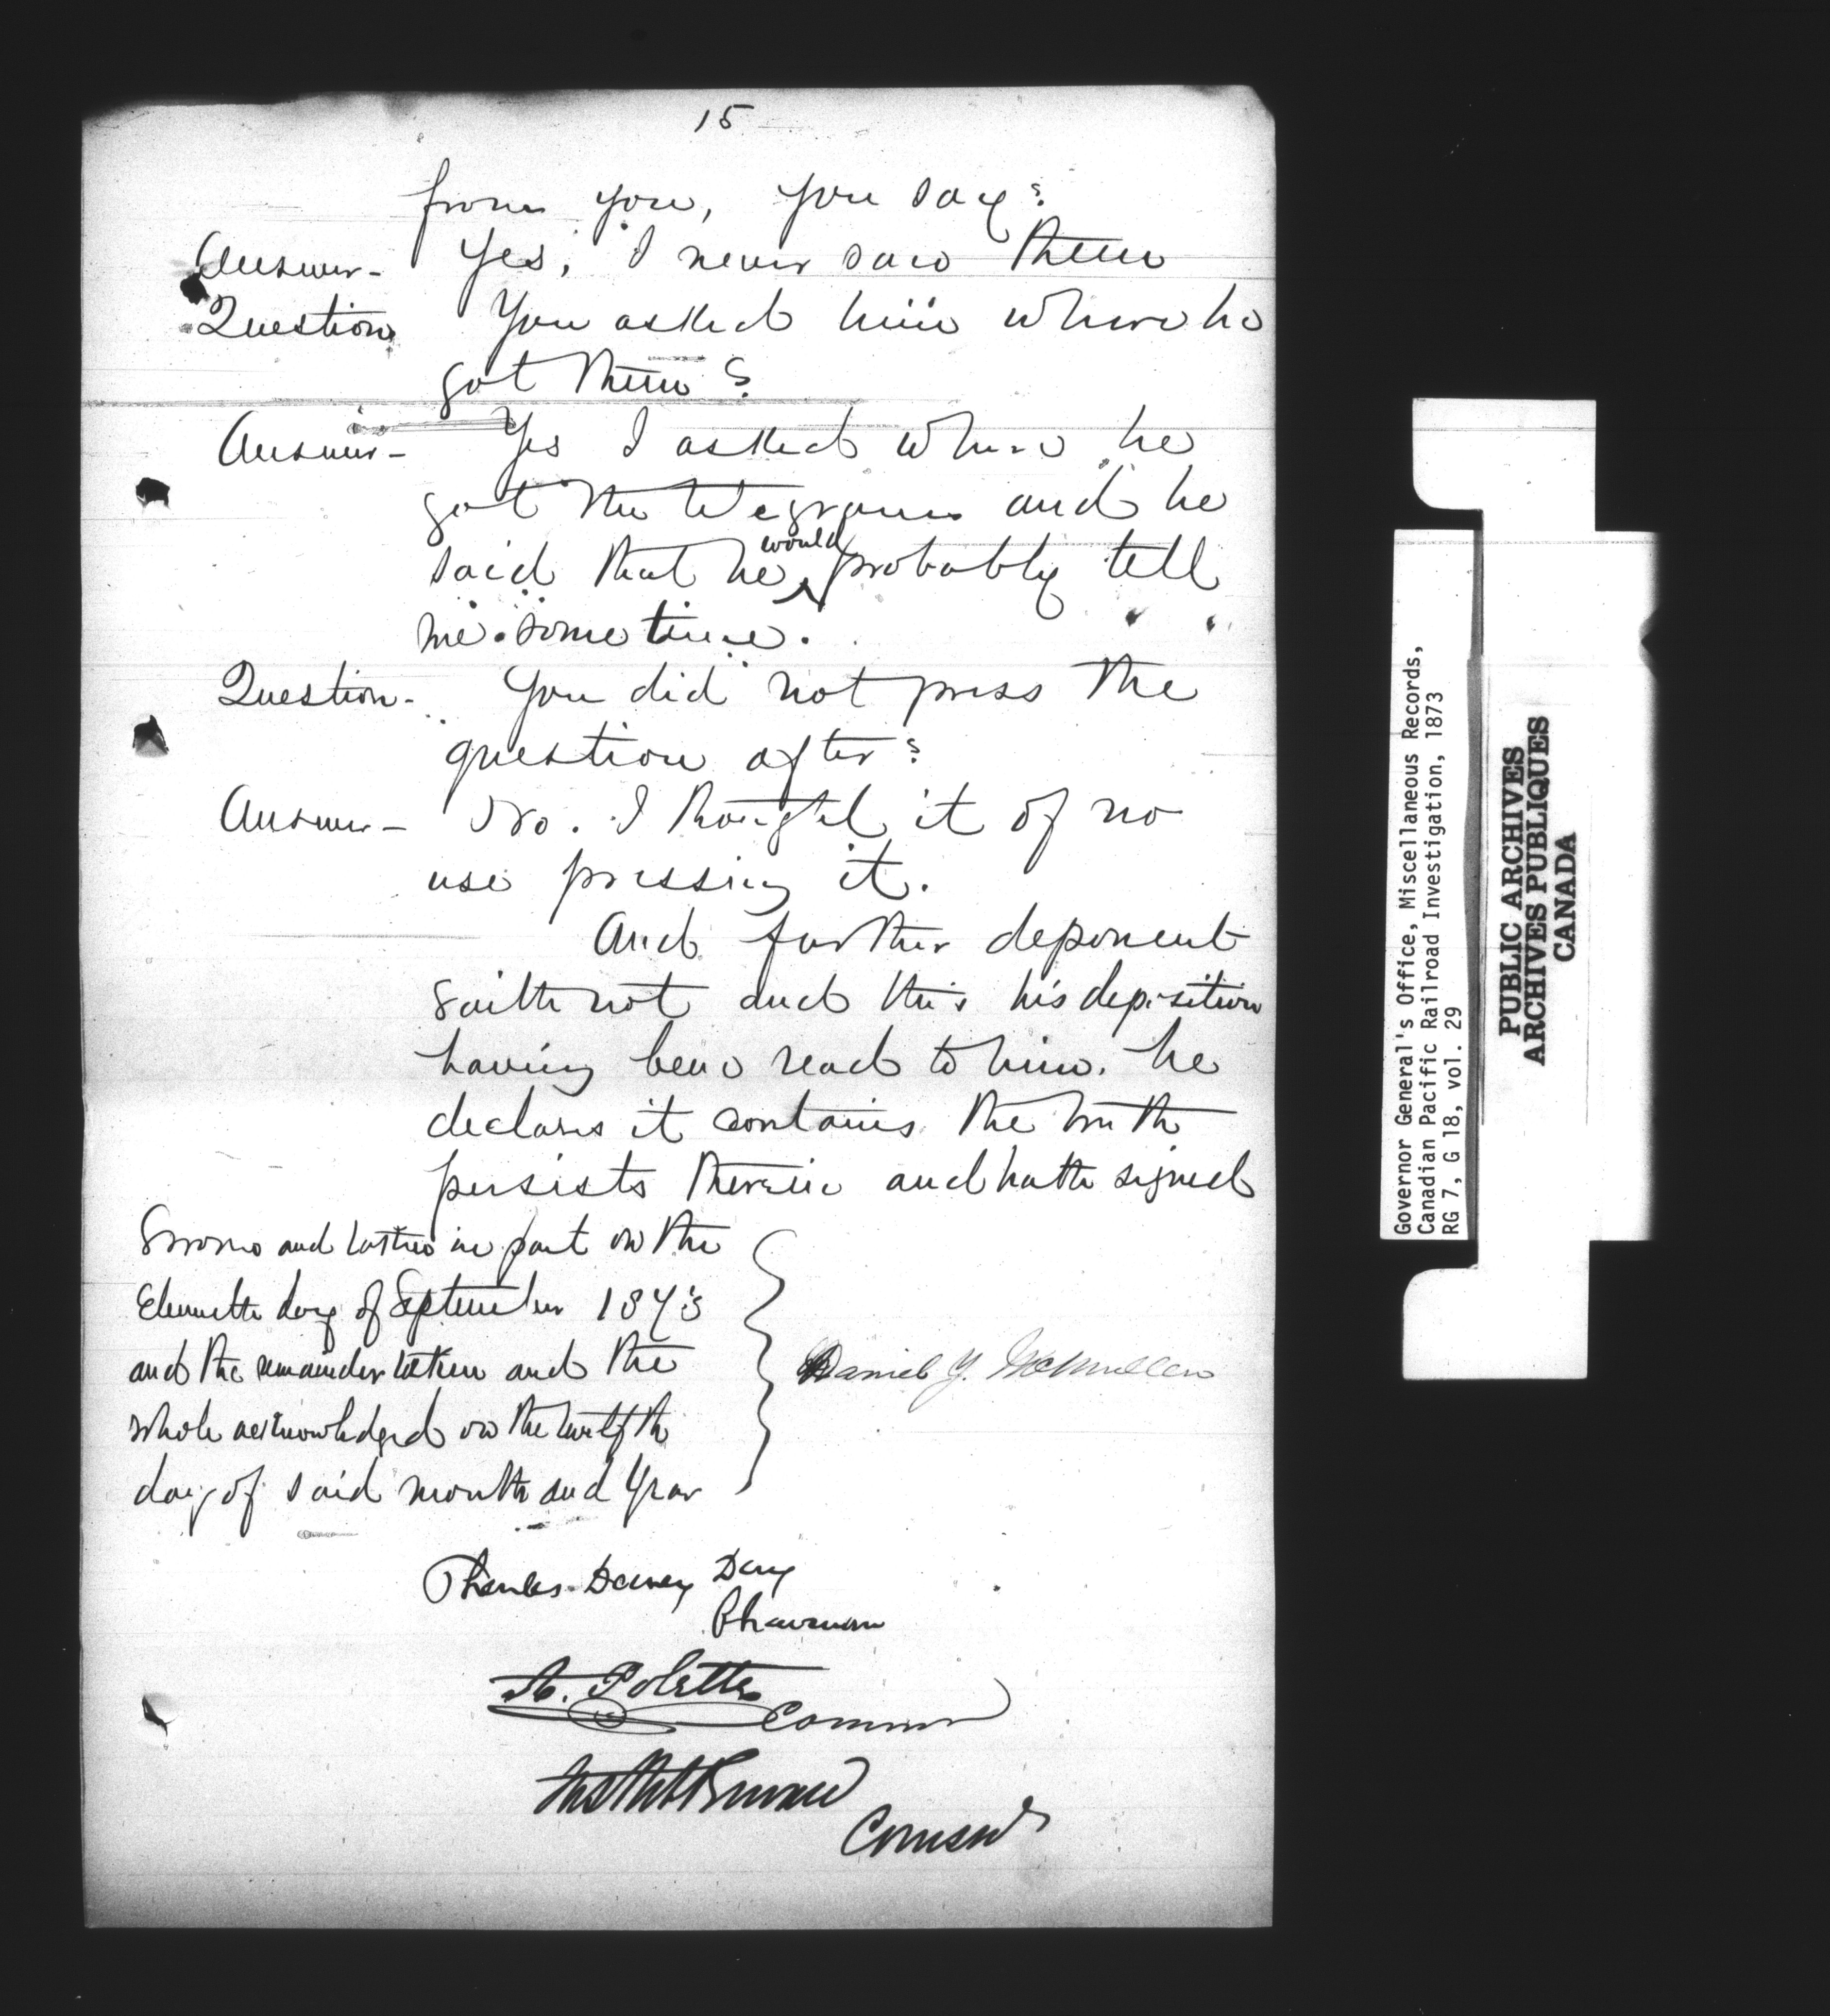 15
from you, you say?
Answer - Yes, I never saw them
Question You asked him where he
got them?
Answer - Yes I asked where he
got the telegrams and he
said that he would probably tell
me some time.
Question - You did not press the
question after?
Answer - No. I thought it of no
use pressing it.
And further deponent
saith not and this his deposition
having been read to him, he
declares it contains the truth
persists therein and hath signed
Sworn and taken in part on the
Eleventh day of September 1873
and the remainder taken and the
whole acknowledged on the twelfth
day of said month and Year
Daniel Y. McMullen
Charles Dewey Day
Chairman
A. Polette
Commr
Gowan
Comssr
Governor General's Office, Miscellaneous Records,
Canadian Pacific Railroad Investigation, 1873
RG 7, G 18, vol. 29
PUBLIC ARCHIVES
ARCHIVES PUBLIQUES
CANADA